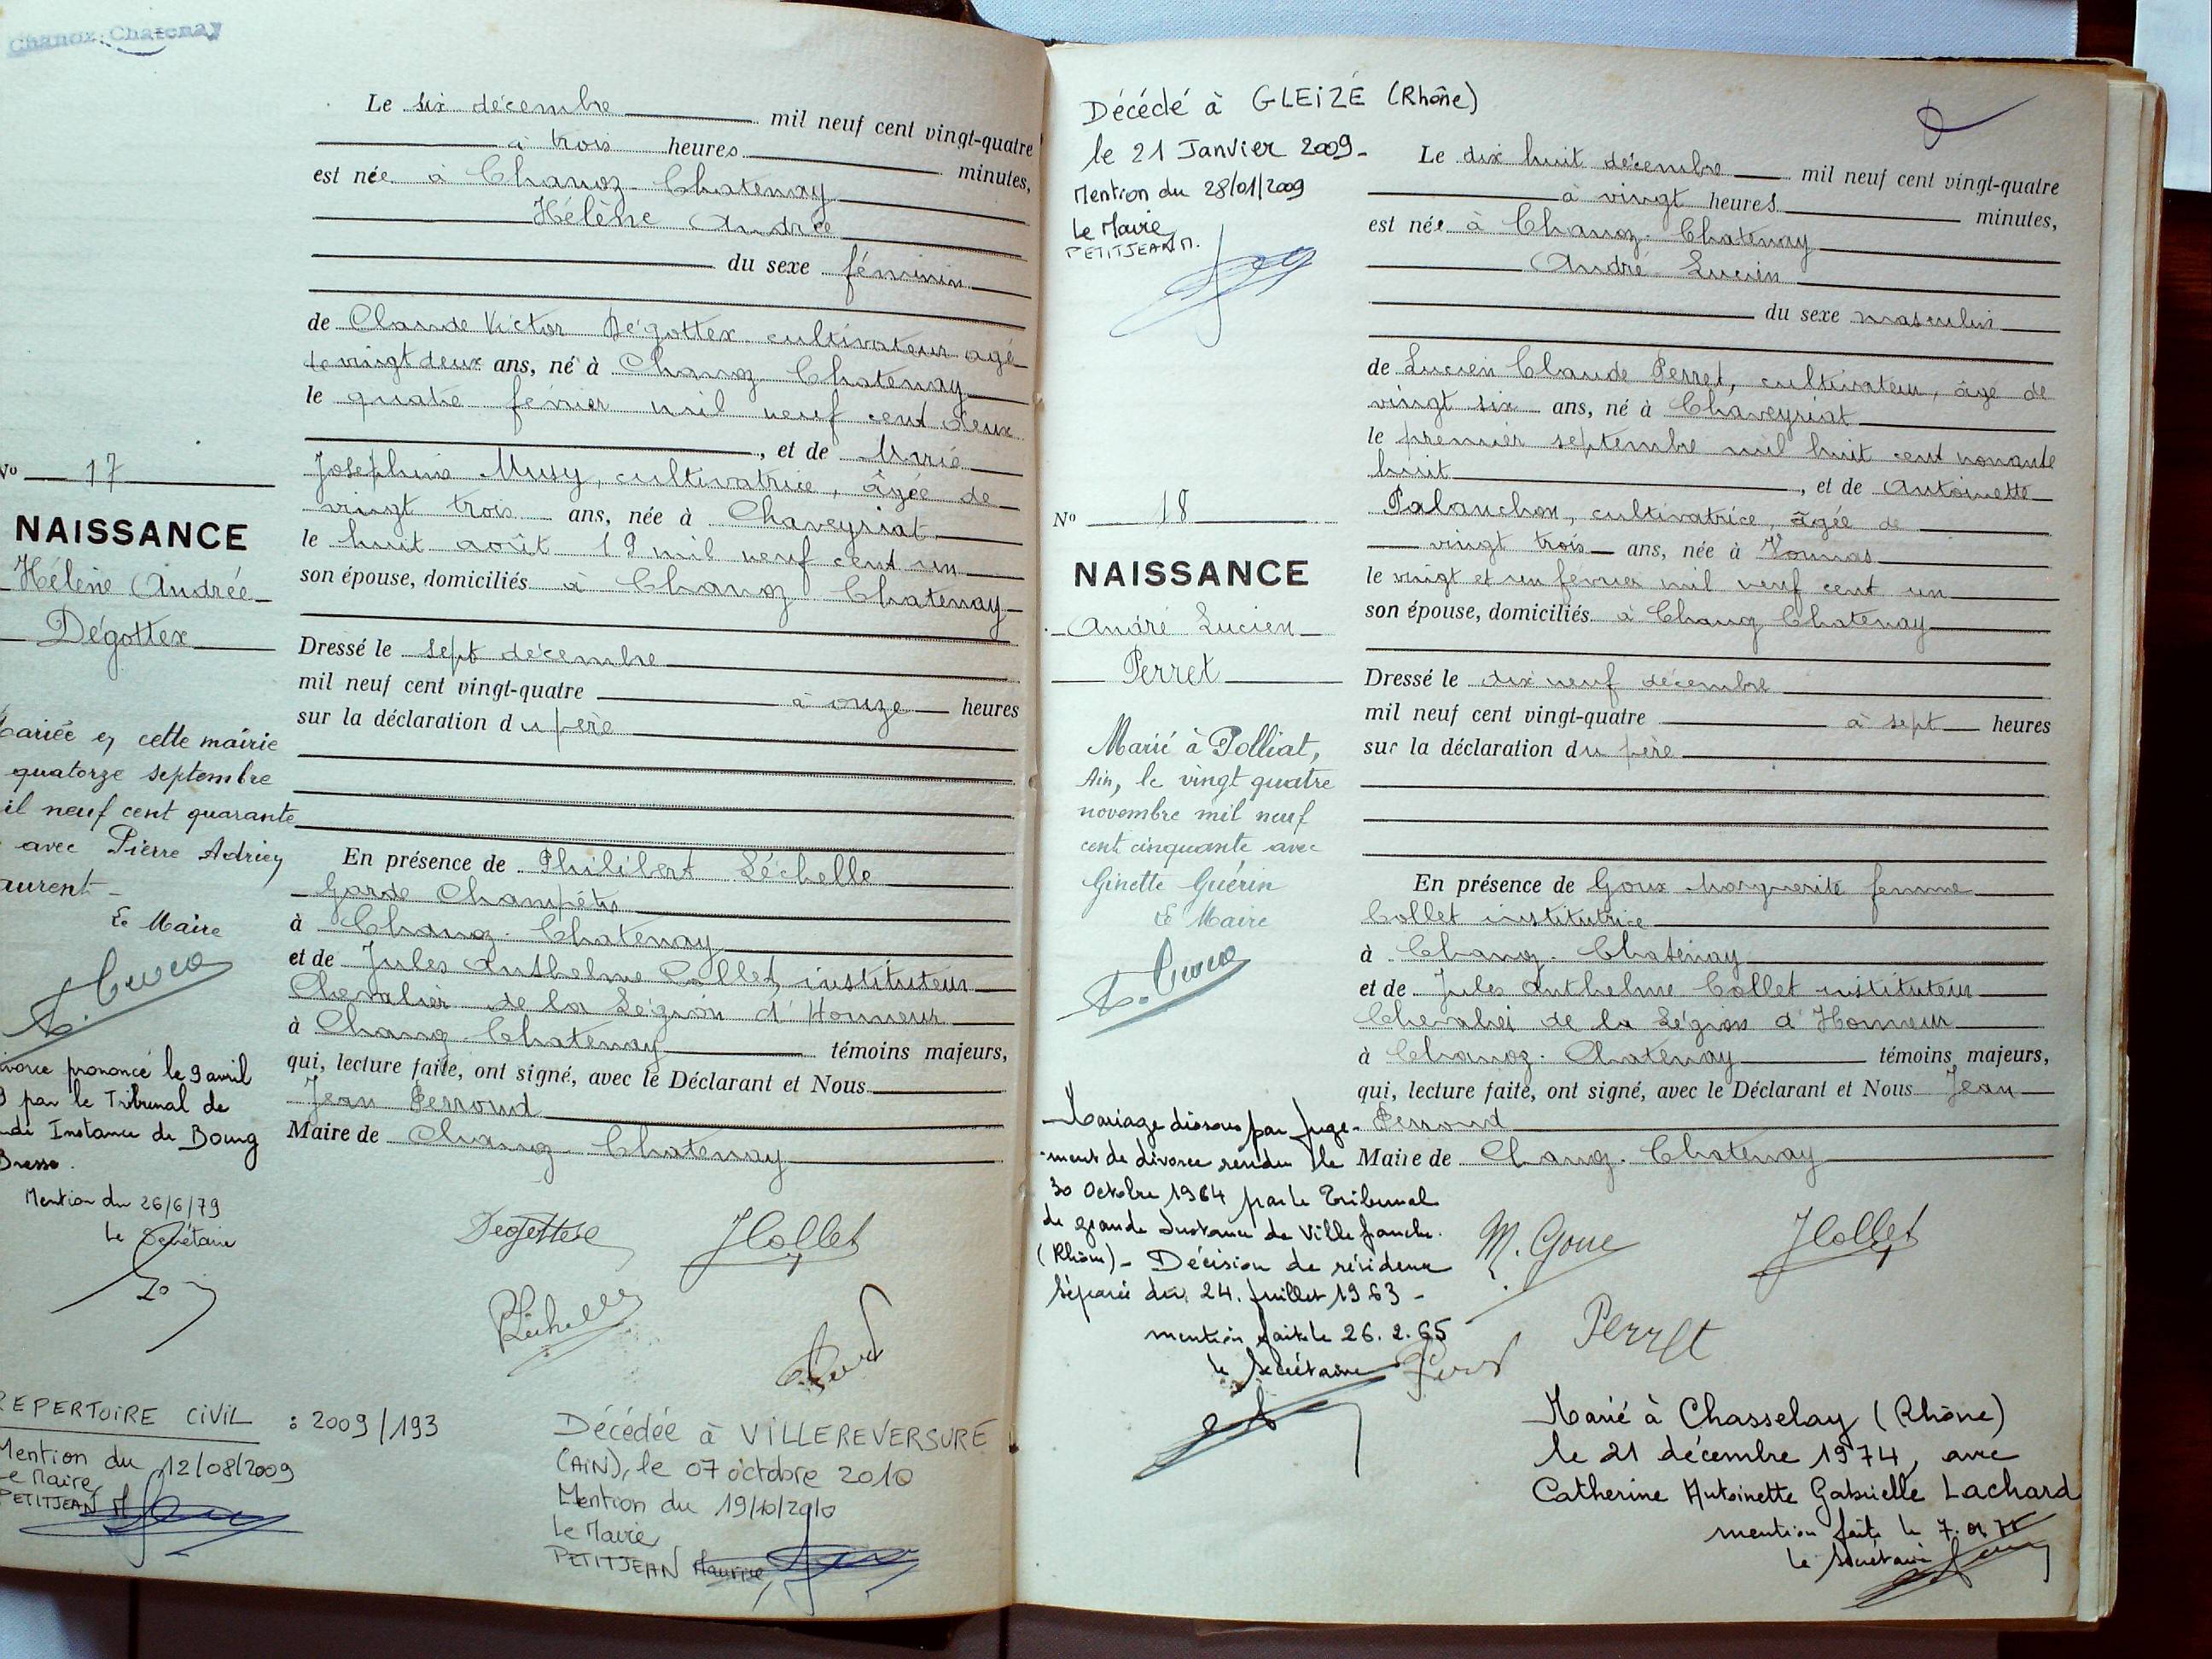 Chanoz-Chatenay
Le six décembre mil neuf cent vingt-quatre
à trois heures minutes,
est née à Chanoz-Chatenay
Hélène Andrée
du sexe féminin
de Claude Victor Dégottex cultivateur agé
de vingt deux ans, né à Chanoz Chatenay
le quatre février mil neuf cent deux
, et de Marie
Josephine Musy, cultivatrice, âgée de
vingt trois ans, née à Chaveyriat
le huit août 19 mil neuf cent un
son épouse, domiciliés à Chanoz Chatenay
Dressé le sept décembre
mil neuf cent vingt-quatre à onze heures
sur la déclaration du père
En présence de Philibert Léchelle
Garde Champêtre
à Chanoz-Chatenay
et de Jules Anthelme Collet, instituteur
Chevalier de la Légion d'Honneur
à Chanoz-Chatenay témoins majeurs,
qui, lecture faite, ont signé, avec le Déclarant et Nous
Jean Perroud
Maire de Chanoz-Chatenay
Degottex
JCollet
PLéchelle
No 17
NAISSANCE
Hélène Andrée
Dégottex
ariée en cette mairie
quatorze septembre
il neuf cent quarante
avec Pierre Adrien
aurent
Le Maire
ivorce prononcé le 9 avril
9 par le Tribunal de
nde Instance de Bourg
Bresse.
Mention du 26/6/79
Le Secrétaire
REPERTOIRE CIVIL : 2009/193
Mention du 12/08/2009
Le Maire
PETITJEAN M
Décédée à VILLEREVERSURE
(AIN), le 07 octobre 2010
Mention du 19/10/2010
Le Maire
PETITJEAN Maurice
Décédé à GLEIZÉ (Rhône)
le 21 Janvier 2009-
Mention du 28/01/2009
Le Maire
PETITJEAN M.
No 18
NAISSANCE
André Lucien
Perret
Marié à Polliat,
Ain, le vingt quatre
novembre mil neuf
cent cinquante avec
Ginette Guérin
Le Maire
Mariage dissous par juge-
-ment de divorce rendu le
30 Octobre 1964 par le Tribunal
de grande Instance de Villefranche.
(Rhône)- Décision de résidence
séparée du 24. Juillet 1963-
mention faite le 26.2.65
le Secrétaire
Le dix huit décembre mil neuf cent vingt-quatre
à vingt heures minutes,
est née à Chanoz-Chatenay
André Lucien
du sexe masculin
de Lucien Claude Perret, cultivateur, âgé de
vingt six ans, né à Chaveyriat
le premier septembre mil huit cent nonante
huit , et de Antoinette
Palanchon, cultivatrice, âgée de
vingt trois ans, née à Vonnas
le vingt et un février mil neuf cent un
son épouse, domiciliés à Chanoz Chatenay
Dressé le dix neuf décembre
mil neuf cent vingt-quatre à sept heures
sur la déclaration du père
En présence de Goux Marguerite femme
Collet institutrice
à Chanoz-Chatenay
et de Jules Anthelme Collet instituteur
Chevalier de la Légion d'Honneur
à Chanoz-Chatenay témoins majeurs,
qui, lecture faite, ont signé, avec le Déclarant et Nous Jean
Perroud
Maire de Chanoz-Chatenay
M. Goux
JCollet
Perret
Marié à Chasselay (Rhône)
le 21 décembre 1974, avec
Catherine Antoinette Gabrielle Lachard
mention faite le
le Secrétaire